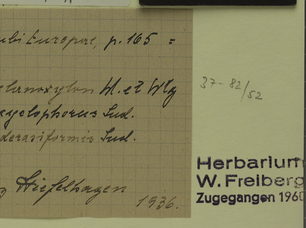 ubi Europae, p. 165 =
lanoxylon M. et Wg
cyclophorus Sud.
derasiformis Sud.
Stiefelhagen
1936.
37-82/52
Herbarium
W. Freiberg
Zugegangen 1960